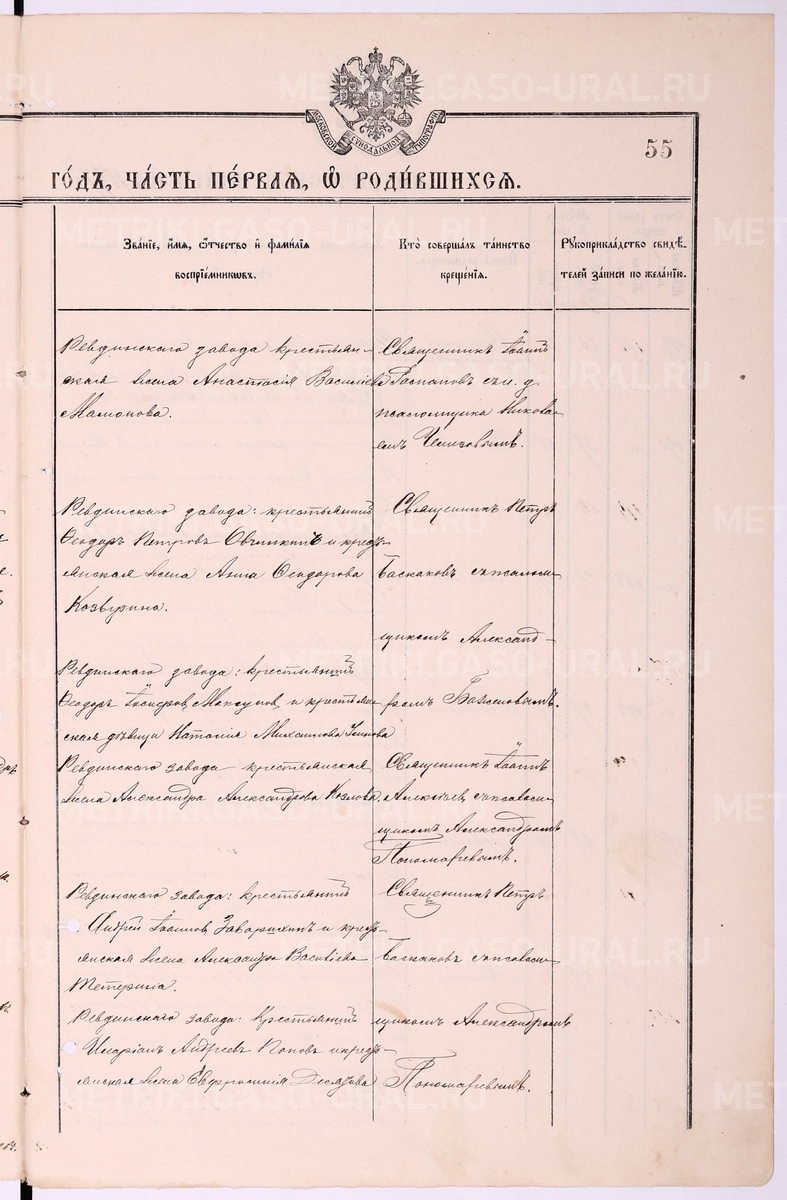 METRIKI.GASO-URAL.RU
МОСКОВСКОЙ СѴНОДАЛЬНОЙ ТИПОГРАФІИ
55
ГО́ДЪ, ЧА́СТЬ ПЕ́РВАЯ, Ѡ РОДИ́ВШИХСЯ.
Зва́нїе, и́мя, ѻ́тчество и҆ фами́лїя
воспрїе́мникѡвъ.
Кто̀ соверша́лъ та́инство
креще́нїя.
Рꙋкоприкла́дство свидѣ́-
телей за́писи по жела́нїю.
Ревдинскаго завода крестьян-
ская жена Анастасія Василіева
Мамонова.
Священникъ Іоаннъ
съ и. д.
псаломщика Никола-
емъ
Ревдинскаго завода: крестьянинъ
Ѳеодоръ Петровъ Овчинкинъ и кресть-
янская жена Анна Ѳеодорова
Козырина.
Священникъ Петръ
Баскаковъ съ псалом-
щикомъ Александ-
ромъ Баженовымъ.
Ревдинскаго завода: крестьянинъ
Ѳеодоръ и крестьян-
ская дѣвица Наталія Михаилова
Ревдинскаго завода крестьянская
жена Александра Александрова Козлова
Священникъ Іоаннъ
Алексѣев съ псалом-
щикомъ Александромъ
Пономаревымъ.
Ревдинскаго завода: крестьянинъ
Андрей Іоаннов и кресть-
янская жена Александра Василіева
Священникъ Петръ
Баскаковъ съ псалом-
щикомъ Александромъ
Пономаревымъ.
Ревдинскаго завода: крестьянинъ
Иларіонъ Андреевъ Поповъ и кресть-
янская жена Евфросинія